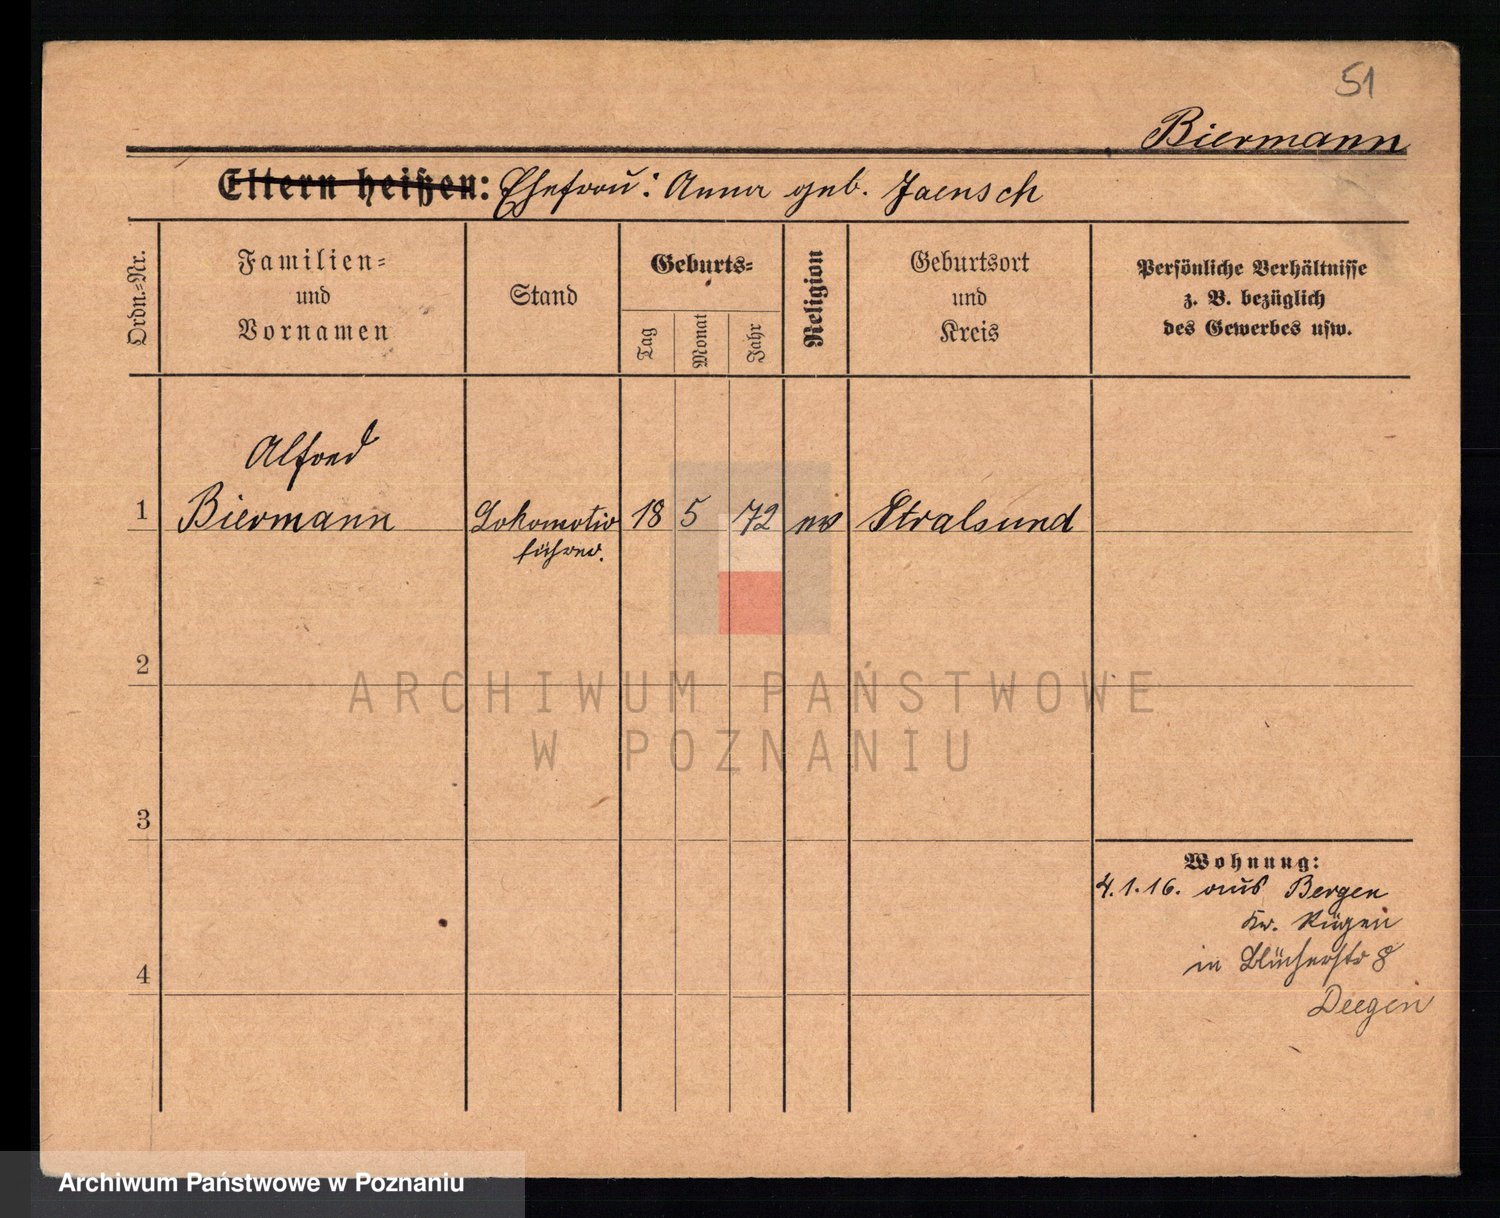 51
Biermann
Eltern heißen: Ehefrau: Anna geb. Jaensch
Ordn.-Nr.
Familien-
und
Vornamen
Stand
Geburts-
Tag
Monat
Jahr
Religion
Geburtsort
und
Kreis
Persönliche Verhältnisse
z. B. bezüglich
des Gewerbes usw.
Alfred
1 Biermann Lokomotiv 18 5 72 ev Stralsund
führer.
2
ARCHIWUM PAŃSTWOWE
W POZNANIU
3
Wohnung:
4.1.16. aus Bergen
Kr. Rügen
in Blücherstr 8
4
Deegen
Archiwum Państwowe w Poznaniu